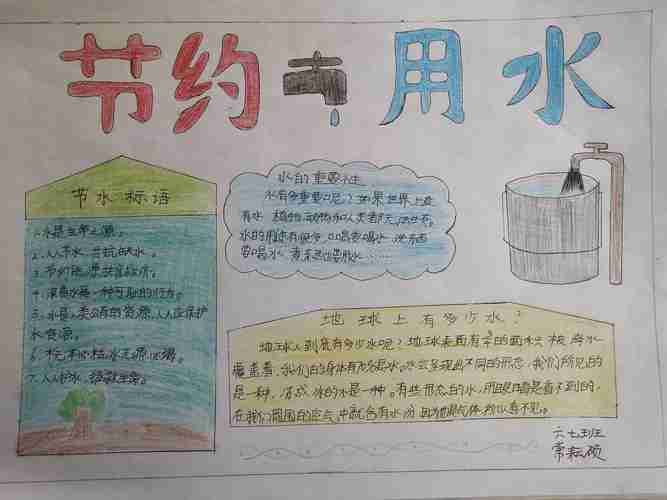 节约用水
节水标语
1. 水是生命之源。
2. 人人节水
3. 节约能源
4. 浪费水是一种可耻的行为。
5. 水是人类公有的资源,人人应保护
水资源。
6.
7. 人人护水
水的重要性
水有多重要呢?如果世界上没
有水 植物 动物和人类都无法生存。
水的用途有很多 口渴要喝水 洗东西
要喝水 煮菜也要放水……
地球上有多少水?
地球人到底有多少水呢?地球表面有 的面积 被海水
覆盖着,我们的身体有 水。水会呈现出不同的形态,我们所见的
是一种,冻成冰的水是一种。有些形态的水,用眼睛是看不到的,
在我们周围的空气中就含有水份 因为他是气体 所以看不见。
六七班
常耘硕